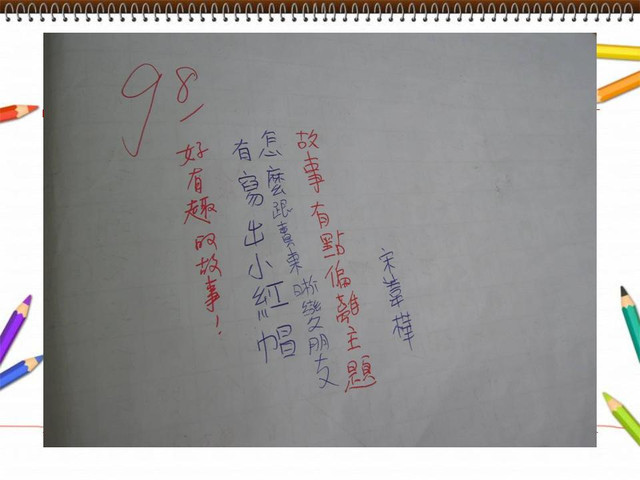 98
宋葦樺
故事有點偏離主題
怎麼跟賣東晰變朋友
有寫出小紅帽
好有趣的故事！